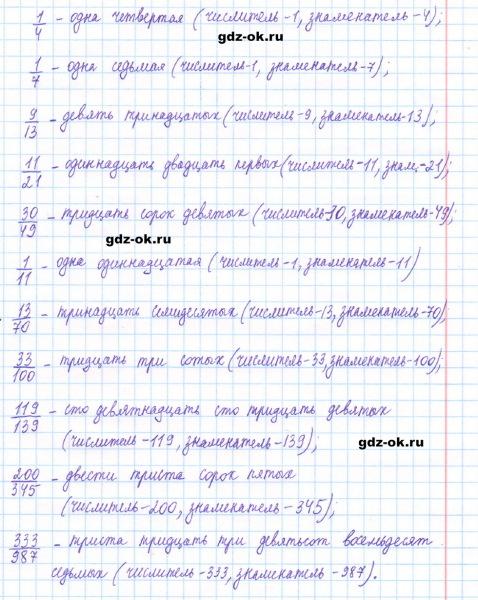 1/4 - одна четвертая (числитель-1, знаменатель-4);
gdz-ok.ru
1/7 - одна седьмая (числитель-1, знаменатель-7);
9/13 - девять тринадцатых (числитель-9, знаменатель-13);
gdz-ok.ru
11/21 - одиннадцать двадцать первых (числитель-11, знам.-21);
30/49 - тридцать сорок девятых (числитель-30, знаменатель-49);
gdz-ok.ru
1/11 - одна одиннадцатая (числитель-1, знаменатель-11)
13/70 - тринадцать семидесятых (числитель-13, знаменатель-70);
33/100 - тридцать три сотых (числитель-33, знаменатель-100);
gdz-ok.ru
119/139 - сто девятнадцать сто тридцать девятых
(числитель-119, знаменатель-139);
gdz-ok.ru
200/345 - двести триста сорок пятых
(числитель-200, знаменатель-345);
333/987 - триста тридцать три девятьсот восемьдесят
седьмых (числитель-333, знаменатель-987).